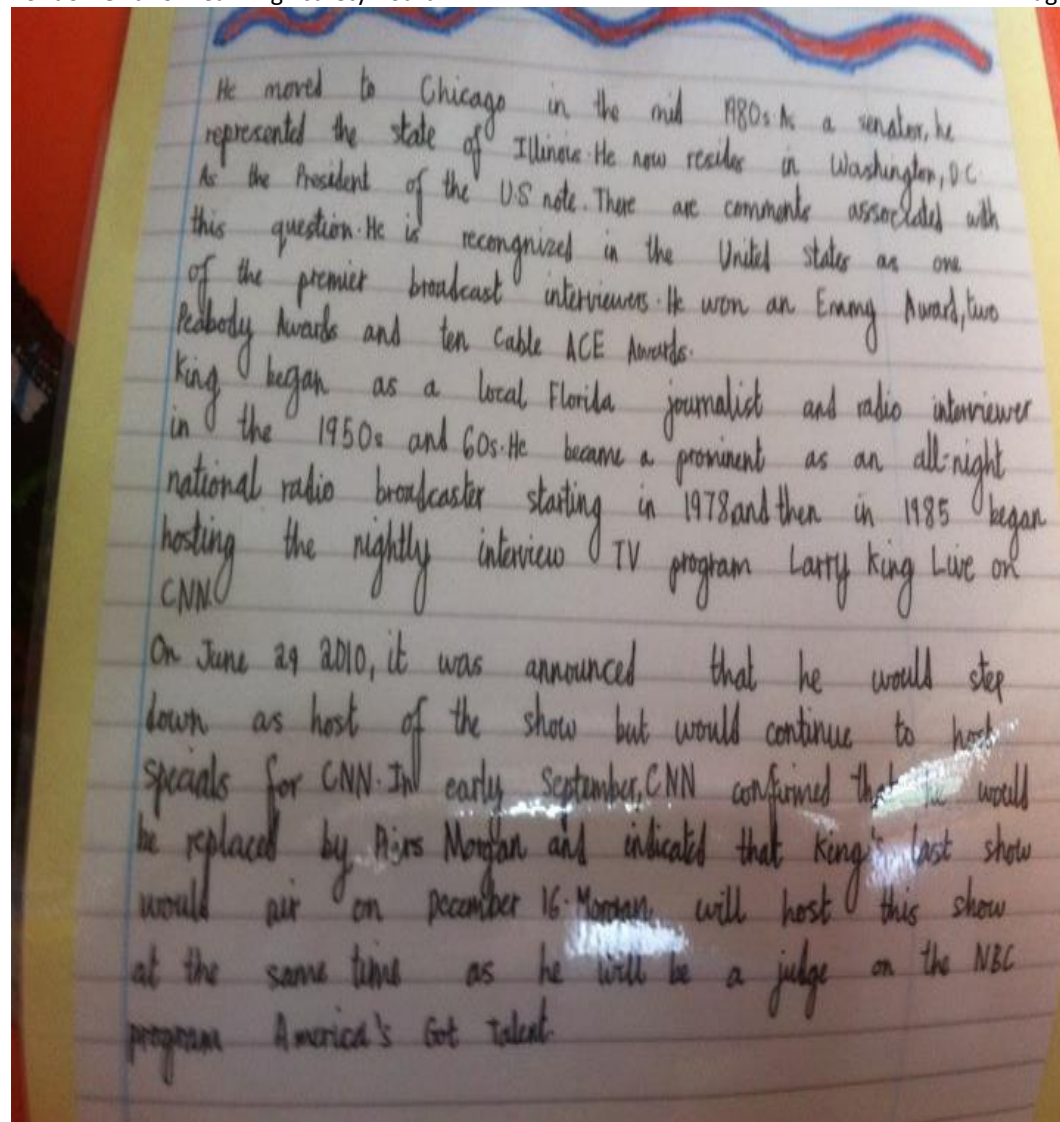 He moved to Chicago in the mid 1980s As a senator, he
represented the state of Illinois. He now resides in Washington, D.C.
As the President of the U.S note. There are comments associated with
this question. He is recongnized in the United states as one
of the premier broadcast interviewers. He won an Emmy Award, two
Peabody Awards and ten Cable ACE Awards.
King began as a local Florida journalist and radio interviewer
in the 1950s and 60s. He became a prominent as an all-night
national radio broadcaster starting in 1978 and then in 1985 began
hosting the nightly interview TV program Larry King Live on
CNN
On June 29 2010, it was announced that he would step
down as host of the show but would continue to host
specials for CNN. In early September, CNN confirmed that he would
be replaced by Piers Morgan and indicated that King's last show
would air on December 16. Morgan will host this show
at the same time as he will be a judge on the NBC
program America's Got Talent.